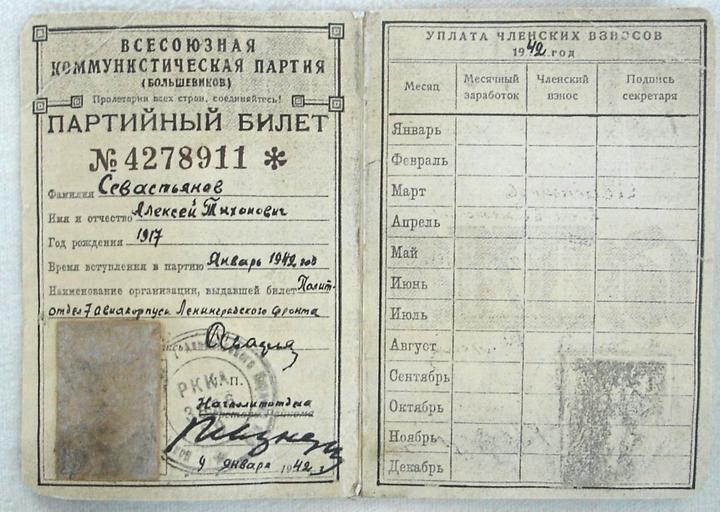 ВСЕСОЮЗНАЯ
КОММУНИСТИЧЕСКАЯ ПАРТИЯ
(БОЛЬШЕВИКОВ)
Пролетарии всех стран, соединяйтесь!
ПАРТИЙНЫЙ БИЛЕТ
№ 4278911 *
Фамилия Севастьянов
Имя и отчество Алексей Тихонович
Год рождения 1917
Время вступления в партию Январь 1942 год
Наименование организации, выдавшей билет Полит-
отдел 7 авиакорпуса Ленинградского фронта
РККА
М. П.
Началитотдела
Секретарь Райкома
9 января 1942 г.
УПЛАТА ЧЛЕНСКИХ ВЗНОСОВ
1942 год
Месяц Месячный заработок Членский взнос Подпись секретаря
Январь
Февраль
Март
Апрель
Май
Июнь
Июль
Август
Сентябрь
Октябрь
Ноябрь
Декабрь